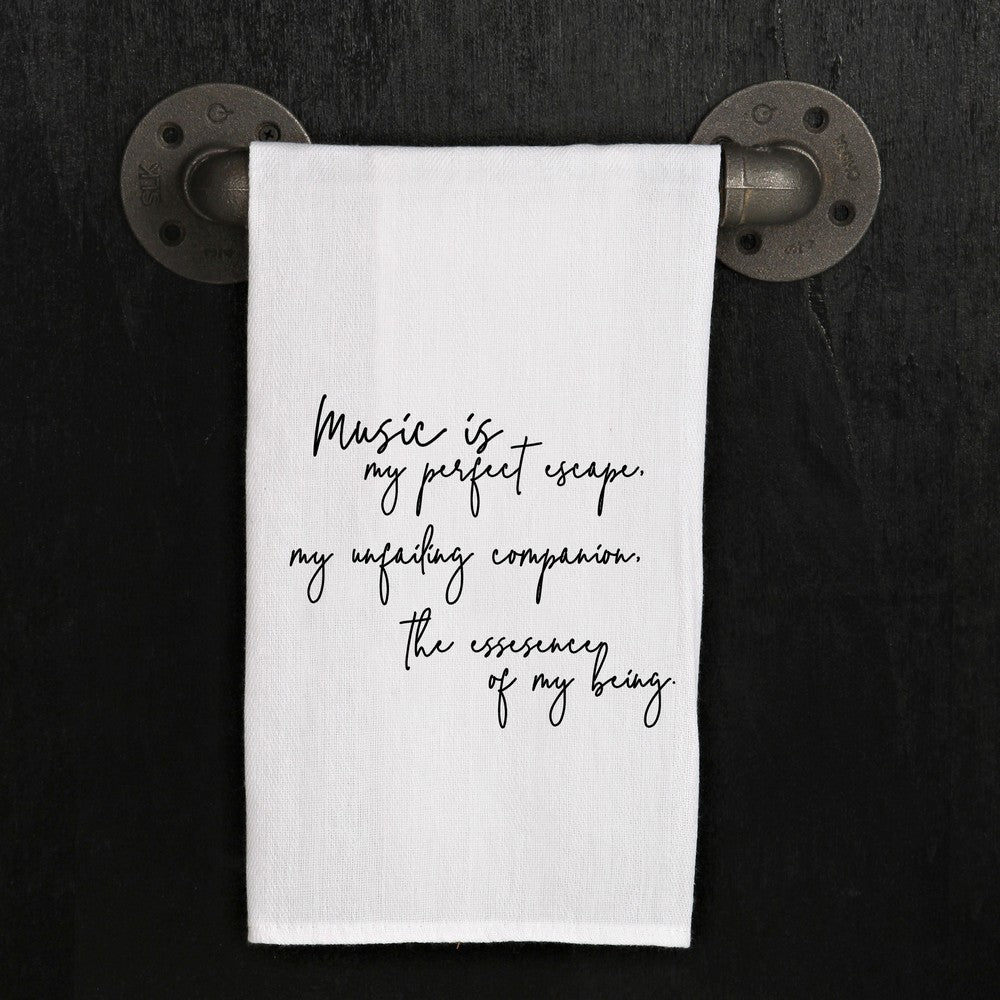 Music is
my perfect escape,
my unfailing companion,
the essesence
of my being.
SLK
CHINA